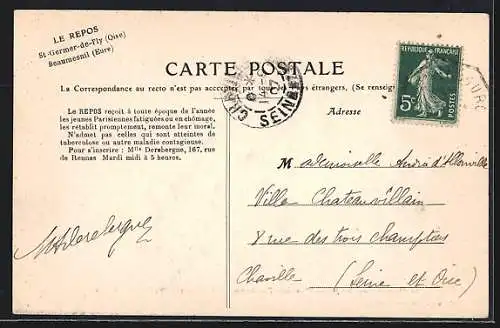 LE REPOS
St-Germer-de-Fly (Oise)
Beaumesnil (Eure)
CARTE POSTALE
La Correspondance au recto n'est pas acceptée par tous les pays étrangers, (Se renseign
Adresse
Le REPOS reçoit à toute époque de l'année
les jeunes Parisiennes fatiguées ou en chômage,
les rétablit promptement, remonte leur moral.
N'admet pas celles qui sont atteintes de
tuberculose ou autre maladie contagieuse.
Pour s'inscrire : Mlle Dersbergne, 167, rue
de Rennes Mardi midi à 5 heures.
RÉPUBLIQUE FRANÇAISE
5c
POSTES
Mademoiselle André d'
Villa Chateauvillain
8 rue des trois champtiers
Chaville (Seine et Oise)